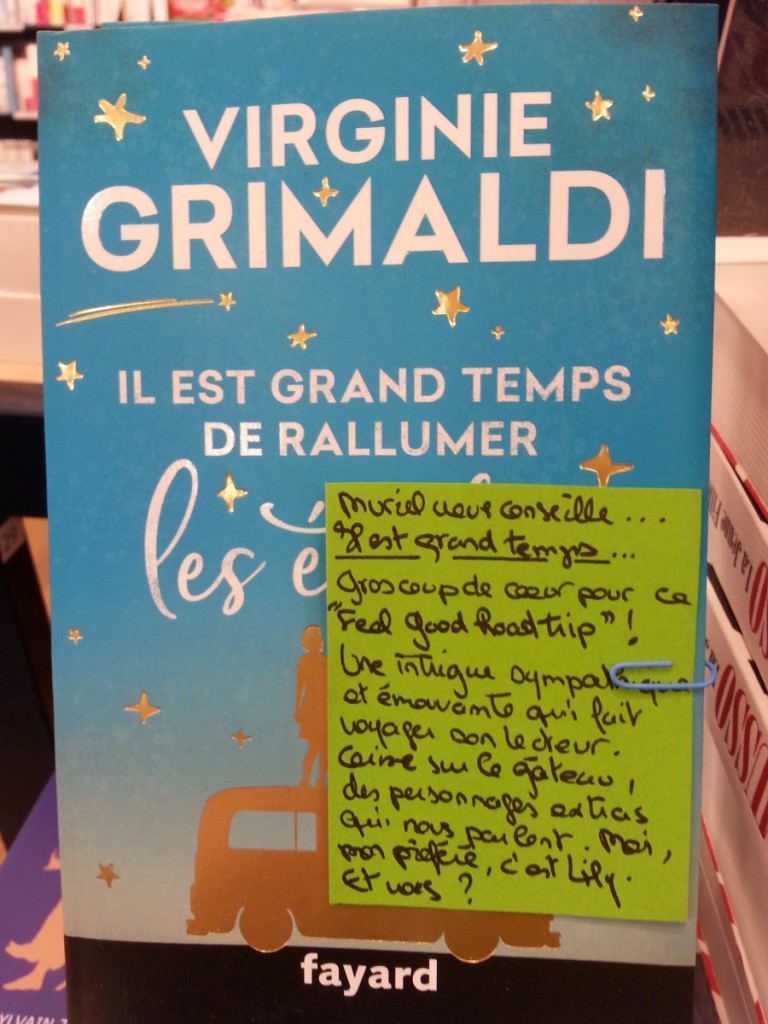 VIRGINIE
GRIMALDI
IL EST GRAND TEMPS
DE RALLUMER
les é
Muriel vous conseille ...
Il est grand temps ...
Gros coup de cœur pour ce
"Feel Good Road trip" !
Une intrigue sympathique
et émouvante qui fait
voyager son lecteur.
Cerise sur le gâteau,
des personnages extras
qui nous parlent. Moi,
mon préféré, c'est Lily.
Et vous ?
fayard
La Jeune